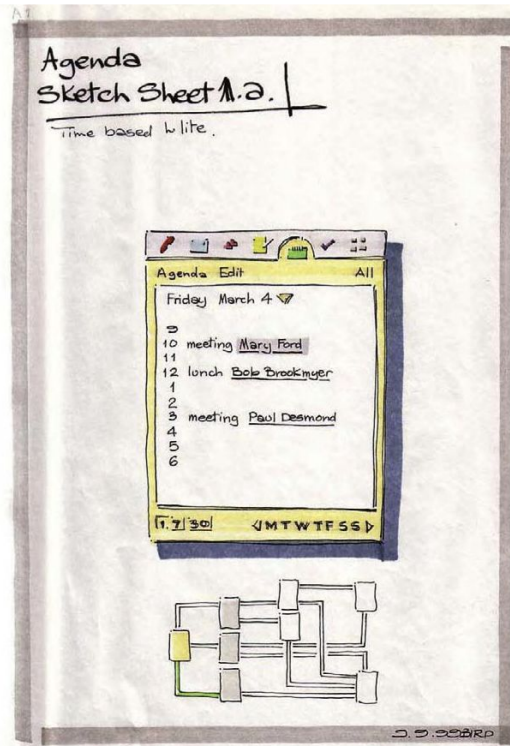 A1
Agenda
Sketch Sheet 1.a.
Time based
Agenda Edit All
Friday March 4
9
10 meeting Mary Ford
11
12 lunch Bob Brookmyer
1
2
3 meeting Paul Desmond
4
5
6
1. 7 30 M T W T F S S